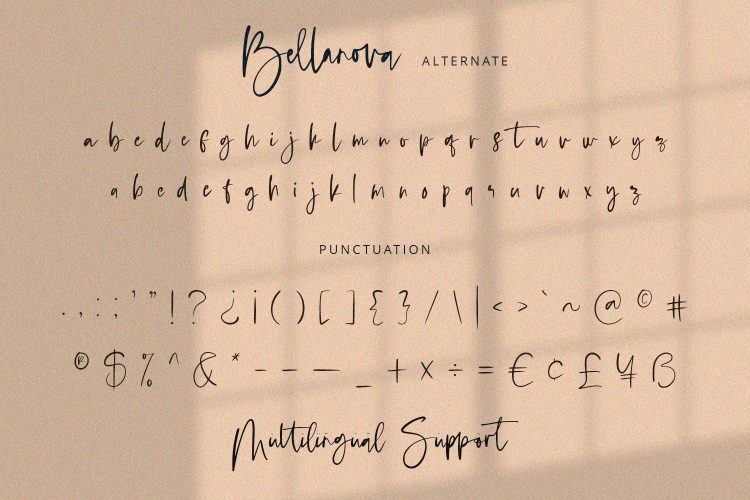 Bellanova ALTERNATE
a b c d e f g h i j k l m n o p q r s t u v w x y z
a b c d e f g h i j k l m n o p q r u v w x y z
PUNCTUATION
. , : ; ' " ! ? ¿ ¡ ( ) [ ] { } / \ | < > ` ~ @ © #
® $ % ^ & * - – — _ + × ÷ = € ¢ £ ¥ ß
Multilingual Support